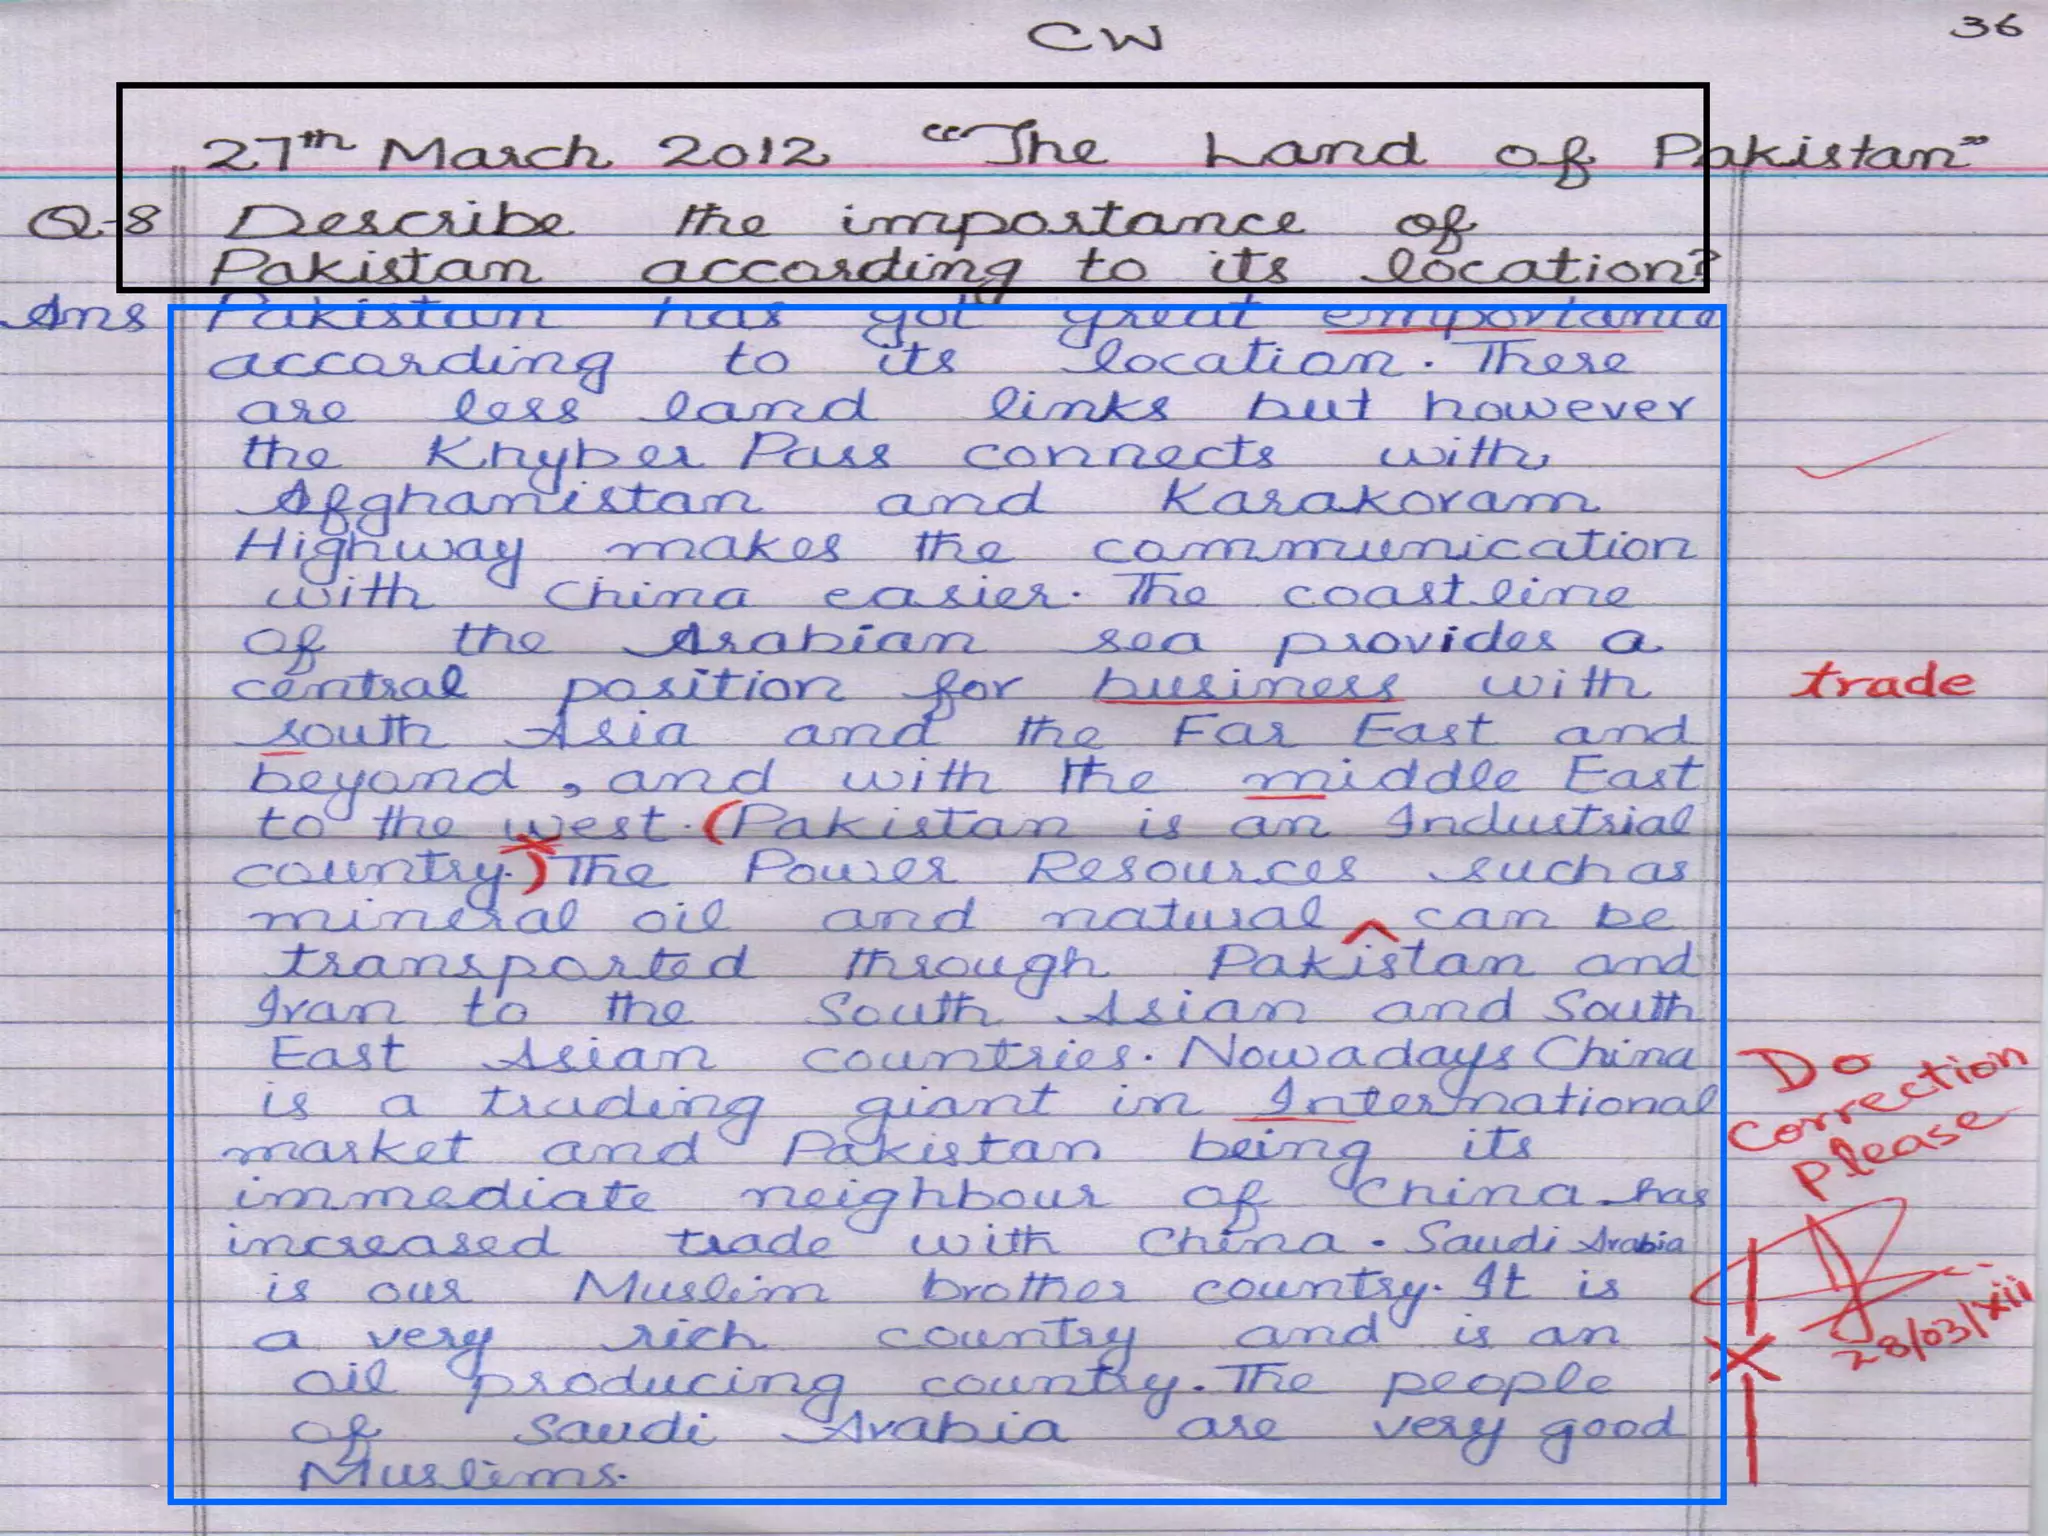 CW
36
27th March 2012 "The Land of Pakistan"
Q-8 Describe the importance of
Pakistan according to its location?
Ans Pakistan has got great emportance
according to its location. There
are less land links but however
the Khyber Pass connects with
Afghanistan and Karakoram
Highway makes the communication
with China easier. The coastline
of the Arabian sea provides a
central position for business with
trade
south Asia and the Far East and
beyond, and with the middle East
to the west. (Pakistan is an Industrial
country.) The Power Resources such as
mineral oil and natural ^ can be
transported through Pakistan and
Iran to the South Asian and South
East Asian countries. Nowadays China
is a trading giant in International
market and Pakistan being its
immediate neighbour of China has
increased trade with China. Saudi Arabia
is our Muslim brother country. It is
a very rich country and is an
oil producing country. The people
of Saudi Arabia are very good
Muslims.
Do
correction
please
28/03/xii